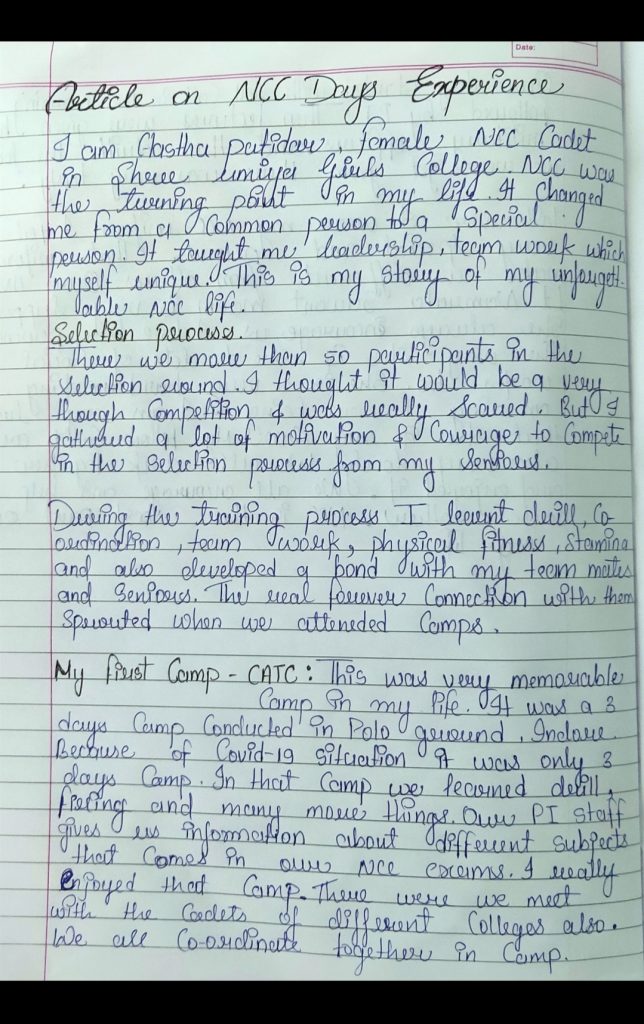 Date:
Article on NCC Days Experience
I am Aastha patidar, female NCC Cadet
in Shree umiya Girls College. NCC was
the turning point in my life. It changed
me from a Common person to a Special
person. It taught me leadership, team work which
myself unique. This is my story of my unforgett-
able NCC life.
Selection process.
There we more than 50 participants in the
selection round. I thought it would be a very
though Competition & was really Scared. But I
gathered a lot of motivation & Courage to Compete
in the selection process from my Seniors.
During the training process I learnt drill, Co
ordination, team work, physical fitness, Stamina
and also developed a bond with my team mates
and Seniors. The real forever Connection with them
Sprouted when we atteneded Camps.
My first Camp - CATC: This was very memorable
Camp in my life. It was a 3
days Camp Conducted in Polo ground, Indore.
Because of Covid-19 situation it was only 3
days Camp. In that Camp we learned drill,
fireing and many more things. Our PI staff
gives us information about different subjects
that Comes in our NCC exams. I really
Enjoyed that Camp. There were we meet
with the Cadets of different Colleges also.
We all Co-ordinate together in Camp.